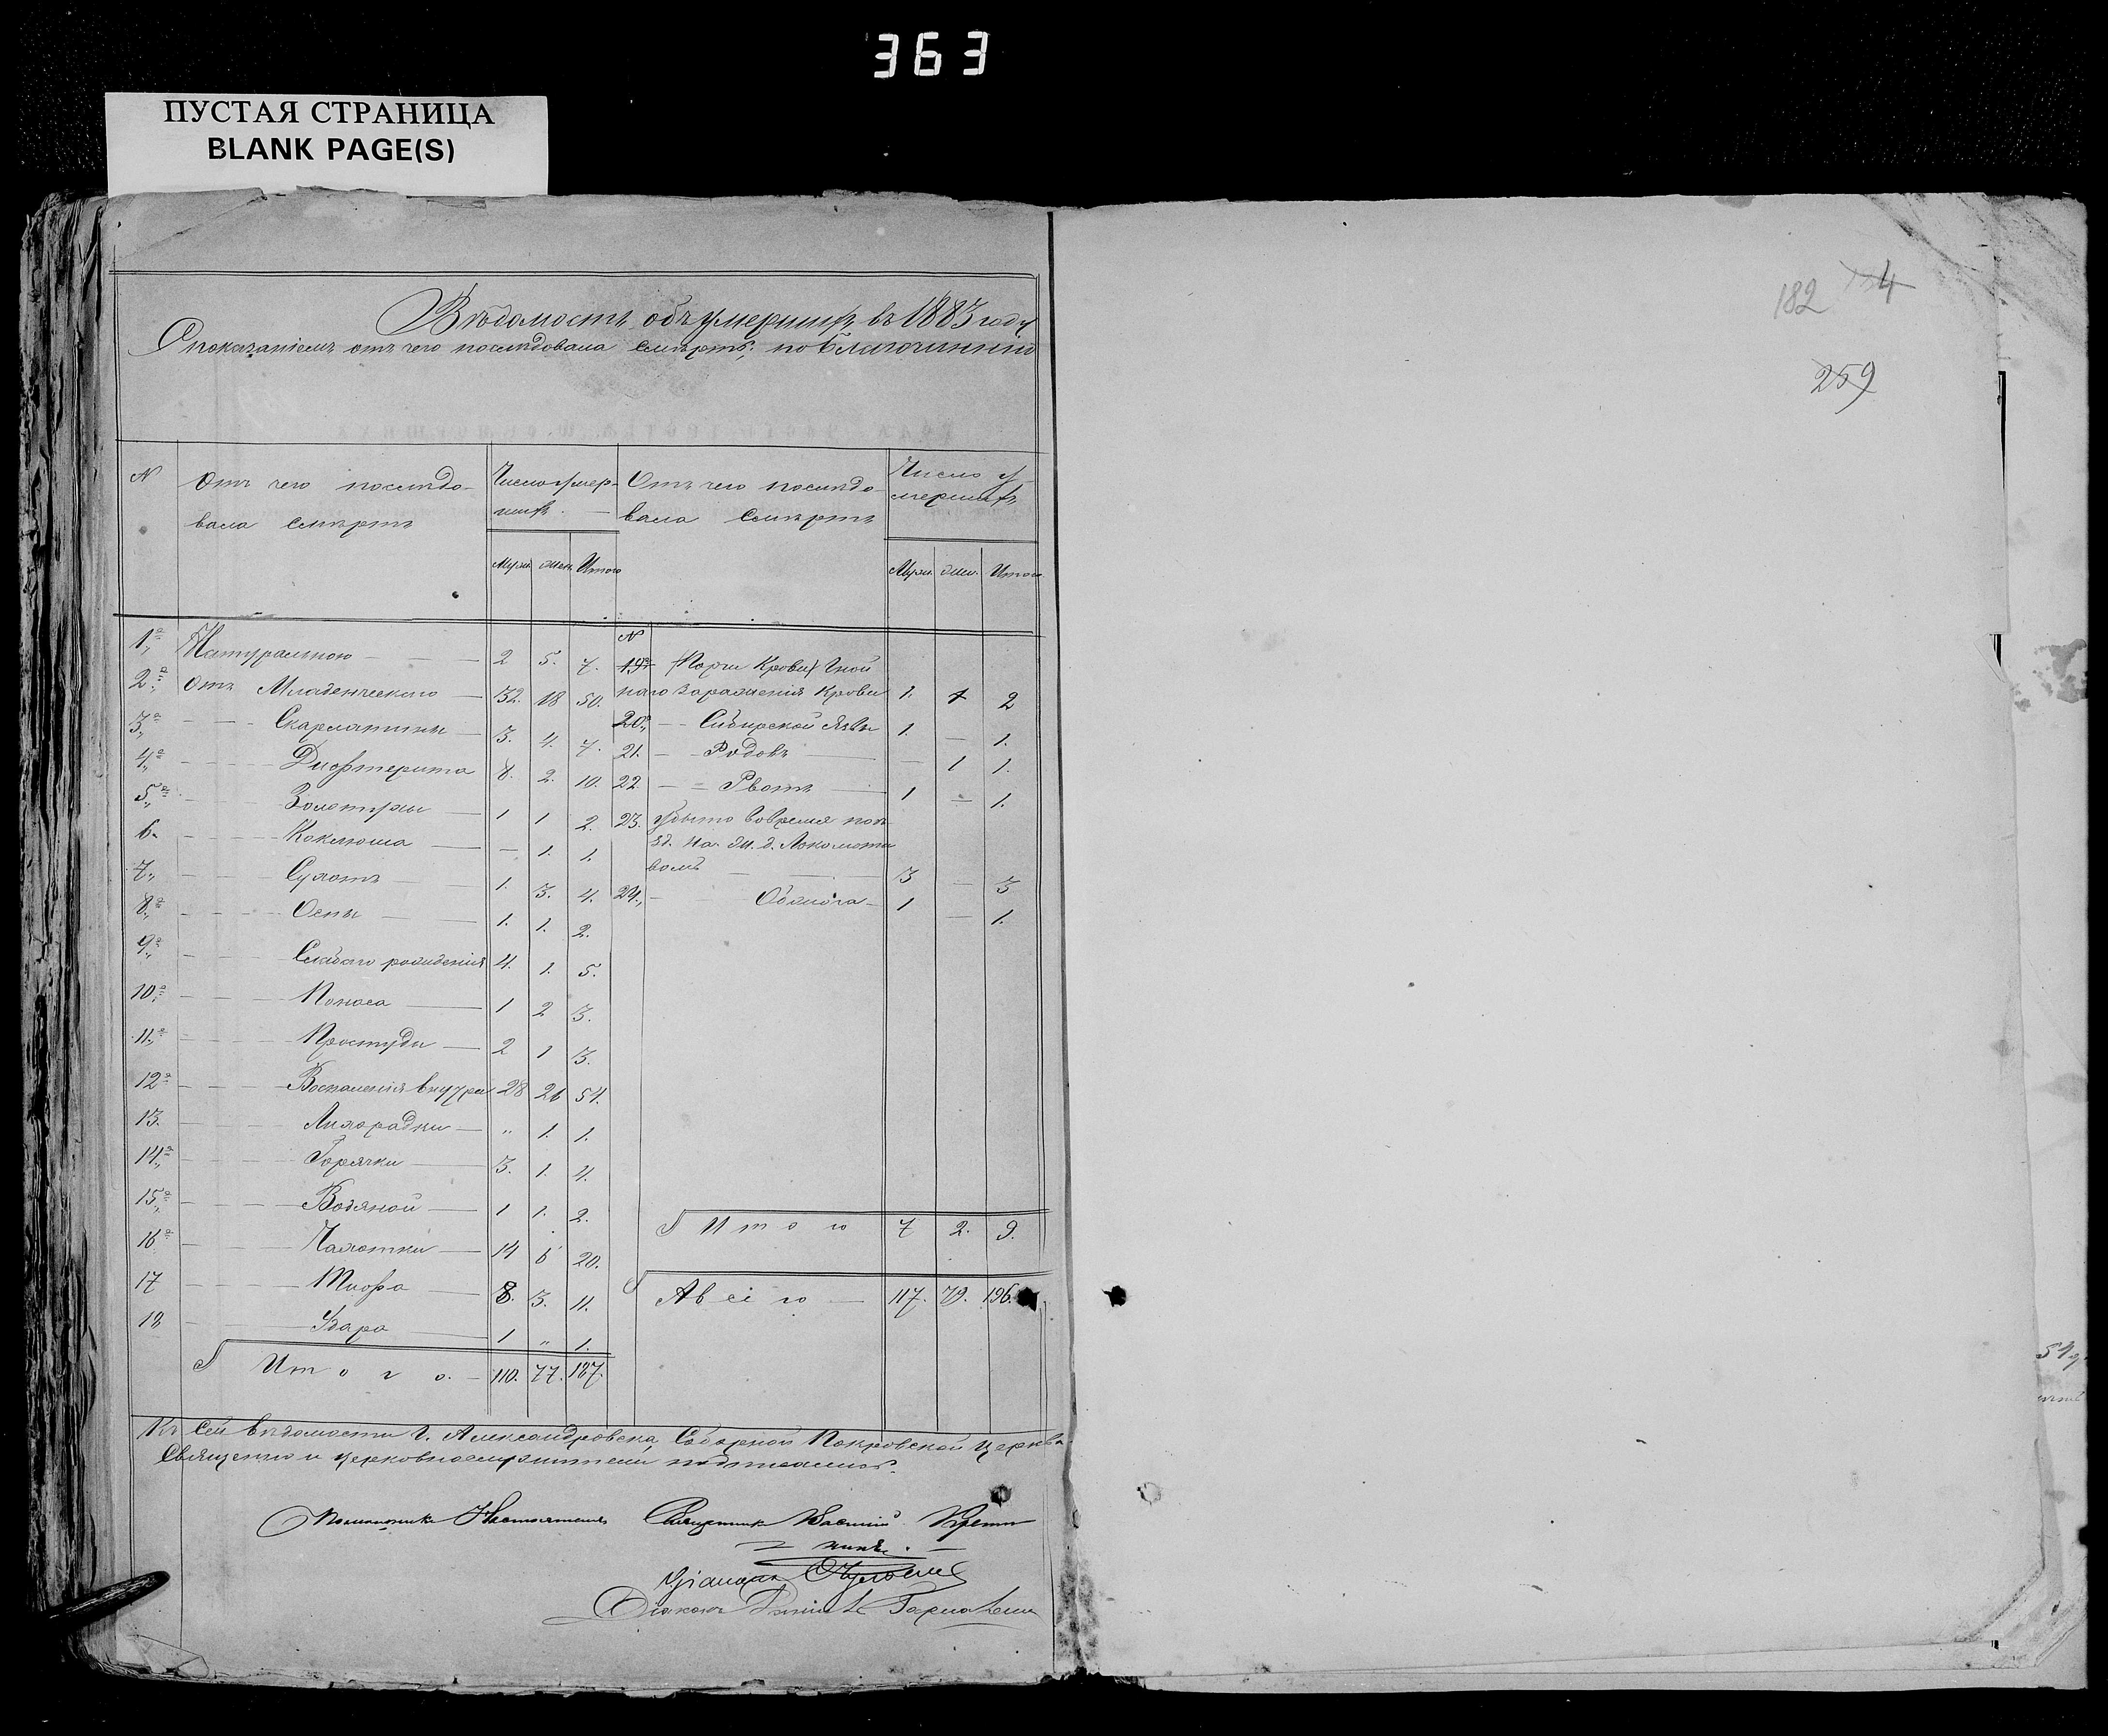 363
ПУСТАЯ СТРАНИЦА
BLANK PAGE(S)
182
259
Вѣдомость объ умершихъ въ 1883 году
Съ показаніемъ отъ чего послѣдовала смѣрть; по Благочинню
N Отъ чего послѣдо- Число умер- Отъ чего послѣдо- Число у-
вала смѣрть шихъ. — вала смѣрть мершихъ
Муж. Жен. Итого Муж. Жен. Итого
1. Натуральною 2 5. 7.
2. отъ Младенческаго 32. 18 50.
3. Скарлатины 3. 4. 7.
4. Дифтерита 8. 2. 10.
5. Золотухи 1 1 2.
6. Коклюша — 1. 1.
7. Сухотъ 1. 3. 4.
8. Оспы 1. 1. 2.
9. Слабаго рожденія 4. 1. 5.
10. Поноса 1 2 3.
11. Простуди 2 1 3.
12. Воспаленія внутри 28 26 54.
13. Лихорадки " 1. 1.
14. Горячки 3. 1. 4.
15. Водяной 1 1. 2.
16. Чахотки 14 6 20.
17 Тифа 8. 3. 11.
18 Удара 1 " 1.
Итого. 110. 77. 187.
N
19. (Порчи Крови) Гной
наго Зараженія Крови 1. 1 2
20. Сибирской Язвы 1. — 1.
21. Родовъ — 1 1.
22 Рвотъ 1 — 1.
23. убыто вовремя
на ж. д. Локомоти
вомъ 3 — 3
24. 1 — 1.
Итого 7 2. 9.
А всіго 117. 79. 196.
Къ сей вѣдомости г. Александровска, Соборной Покровской Церкви
Священно и церковнослужители подписались.
Настоятеля Священникъ Василій
Діаконъ